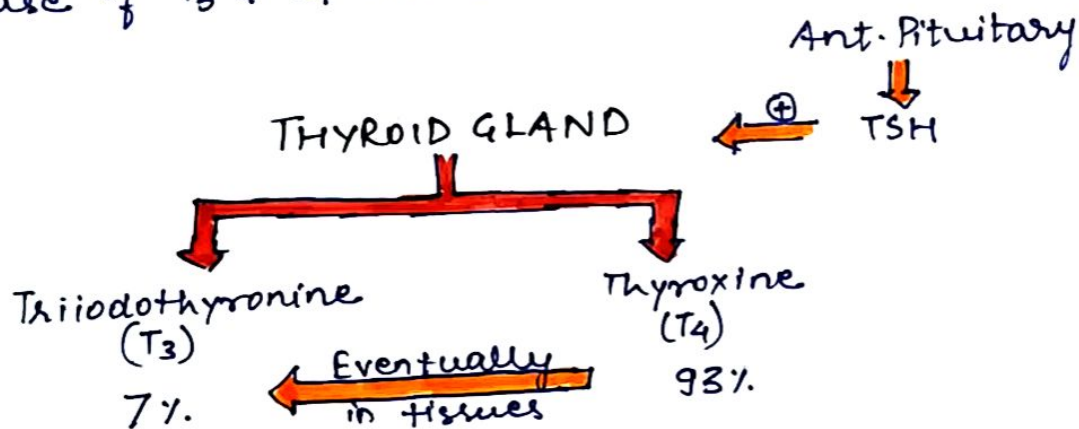 Ant. Pituitary
TSH
THYROID GLAND
+
Triiodothyronine
(T3)
7%.
Thyroxine
(T4)
93%.
Eventually
in tissues